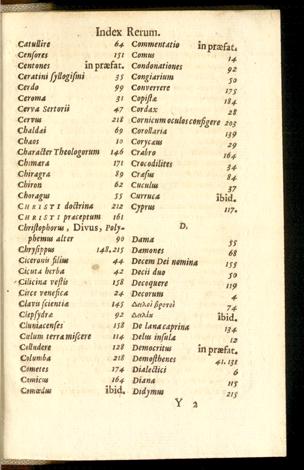 Index Rerum.
Catullire 64
Censores 151
Centones in præfat.
Ceratini syllogismi 35
Cerdo 99
Ceroma 31
Cerva Sertorii 47
Cervus 218
Chaldæi 69
Chaos 10
Character Theologorum 146
Chimæra 171
Chiragra 89
Chiron 62
Choragus 55
CHRISTI doctrina 212
CHRISTI præceptum 161
Christophorus, Divus, Poly-
phemus alter 90
Chrysippus 148.215
Ciceronis filius 44
Cicuta herba 42
Cilicina vestis 158
Circe venefica 24
Clavus scientia 145
Clepsydra 92
Cluniacenses 158
Cœlum terra miscere 114
Colludere 128
Columba 218
Cometes 174
Comicus 164
Comœdus ibid.
Commentatio in præfat.
Comus 14
Condonationes 92
Congiarium 50
Converrere 175
Copistæ 184
Cordax 28
Cornicum oculos configere 203
Corollaria 139
Corycæus 29
Crabro 164
Crocodilites 34
Crœsus 84
Cuculus 37
Curruca ibid.
Cyprus 117.
D.
Dama 55
Damones 68
Decem Dei nomina 155
Decii duo 50
Decoquere 119
Decorum 4
74
ibid.
De lana caprina 134
Delus insula 12
Democritus in præfat.
Demosthenes 41.131
Dialectici 6
Diana 115
Didymus 215
Y 2